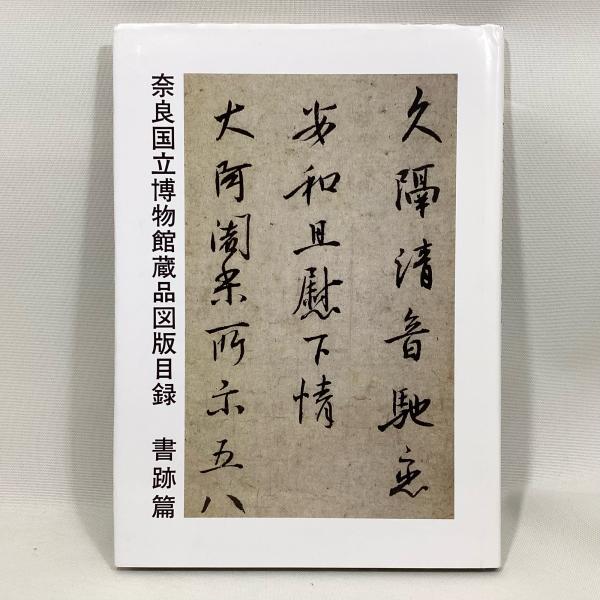 久隔清音馳恋
安和且慰下情
大阿闍梨所示五八
奈良国立博物館蔵品図版目録　書跡篇